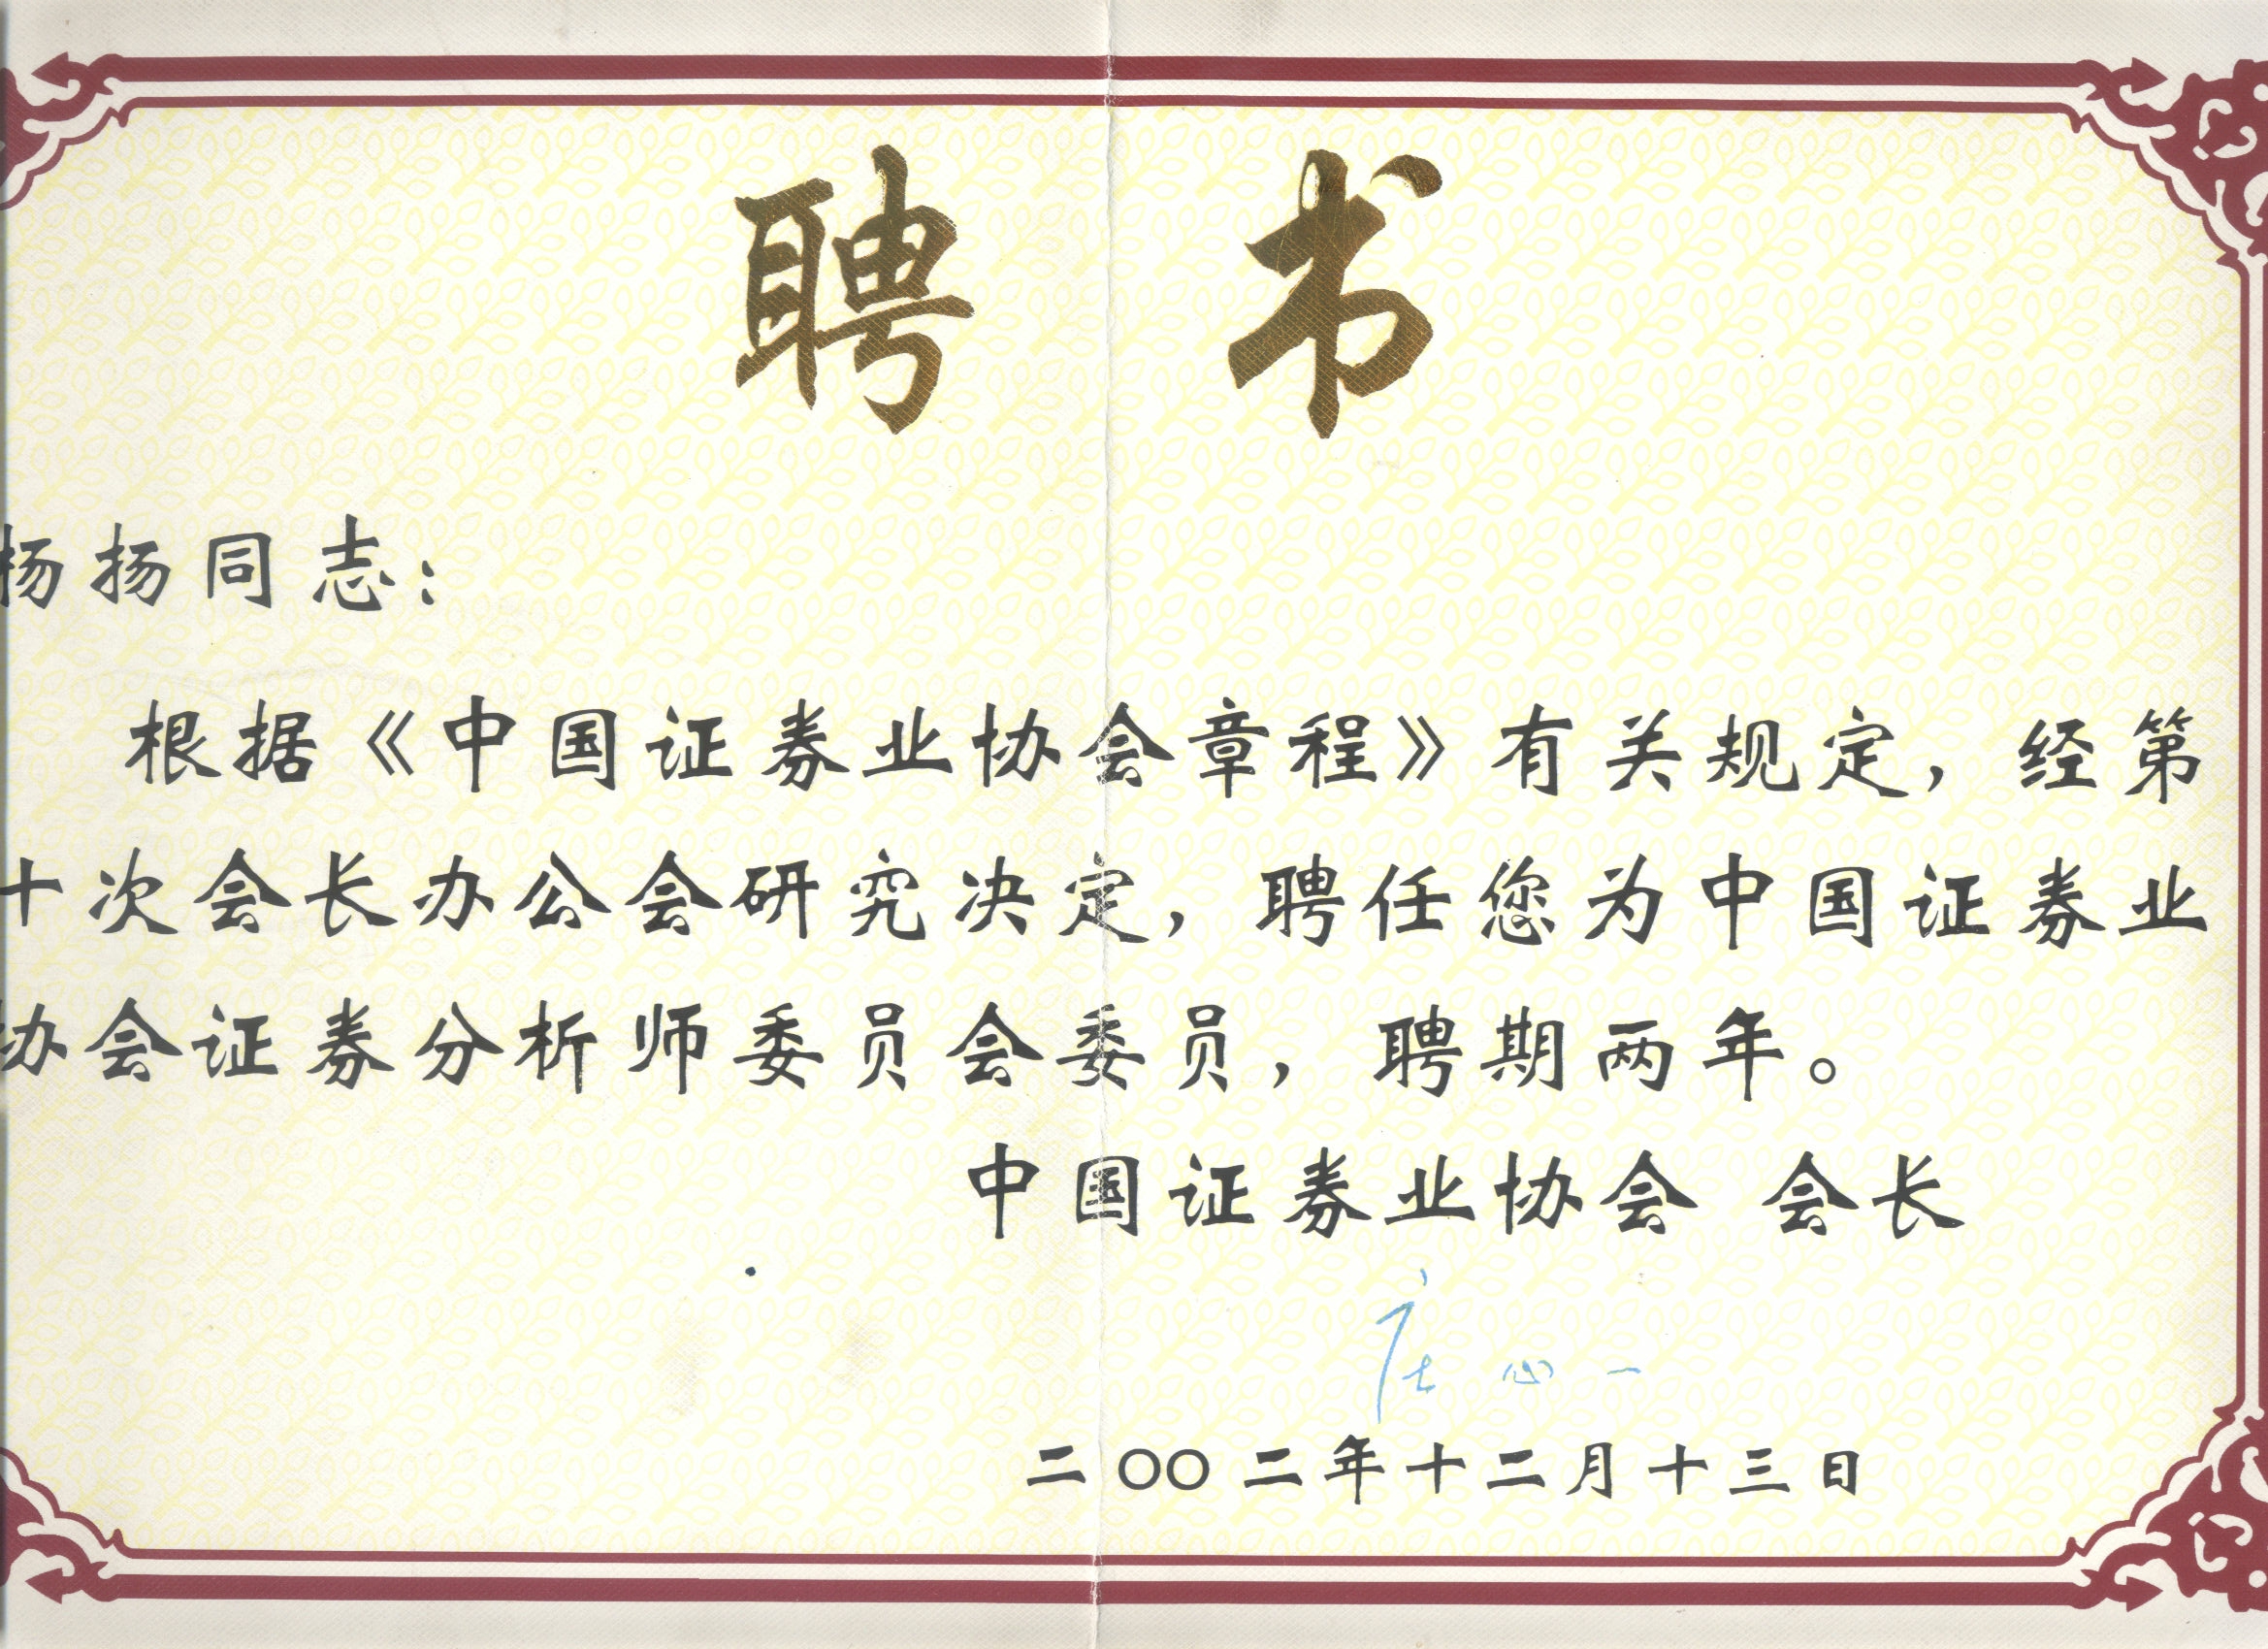 聘书
杨扬同志：
根据《中国证券业协会章程》有关规定，经第
十次会长办公会研究决定，聘任您为中国证券业
协会证券分析师委员会委员，聘期两年。
中国证券业协会 会长
庄心一
二〇〇二年十二月十三日